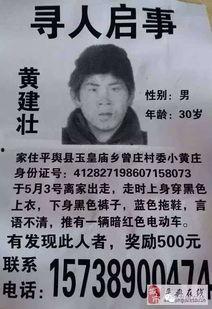 寻人启事
黄建壮
性别：男
年龄：30岁
家住平舆县玉皇庙乡曾庄村委小黄庄
身份证号：412827198607158073
于5月3号离家出走，走时上身穿黑色
上衣，下身黑色裤子，蓝色拖鞋，言
语不清，推有一辆暗红色电动车。
有发现此人者，奖励500元
联系
电话：15738900474